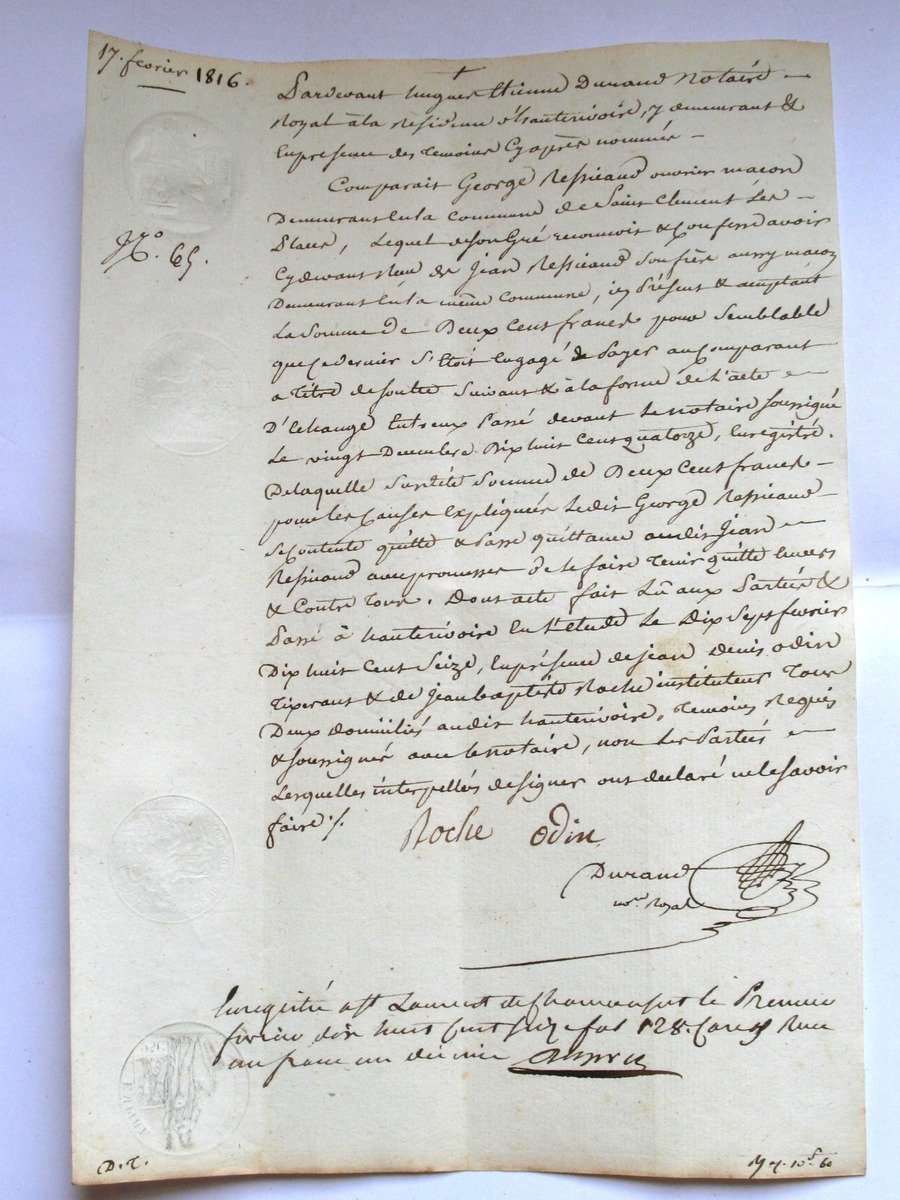 17. fevrier 1816.
Pardevant hugues Etienne Durand Notaire
Royal àla Residence d'hauterivoire, y demeurant &
Enpresence des Temoins Cyaprès nommés
Comparait George Ressicaud ouvrier macon
Demeurant Enla Commune de Saint Clement Les
No. 65.
Places, Lequel deson Gré reconnoit & Confesse avoir
Cydevant Reçu de Jean Ressicaud son frère aussy macon
Demeurant Enla même Commune, icy Présent & acceptant
La Somme de Deux Cent francs pour Semblable
que ce dernier S'Etoit Engagé de Payer au Comparant
a Titre de soulte suivant & à la forme de L'acte
D'Echange Entr'eux Passé devant Le notaire soussigné
Le vingt Decembre Dix huit Cent quatorze, Enregistré.
Delaquelle Susdite Somme de Deux Cent francs
pour les Causes Expliquées Ledit George Ressicaud
se Contente quitte & Passe quittance audit Jean
Ressicaud avec promesses de le faire Tenir quitte Envers
& Contre Tous. Dont acte fait Lû aux Parties &
Passé à hauterivoire En L'etude Le Dix Sept fevrier
Dix huit Cent Seize, En présence de jean denis odin
Tixerant & de Jean baptiste Roche instituteur Tous
Deux domiciliés audit hauterivoire, Temoins Requis
& soussignés avec le notaire, non Les Parties
Lesquelles interpellées de signer ont declaré ne le savoir
faire ./.
Roche odin
Durand
nore Royal
Enregistré a St Laurent de Chamousset le Premier
dix huit Cent seize fol 128 Case 8 Recu
un franc un décime
D. T.